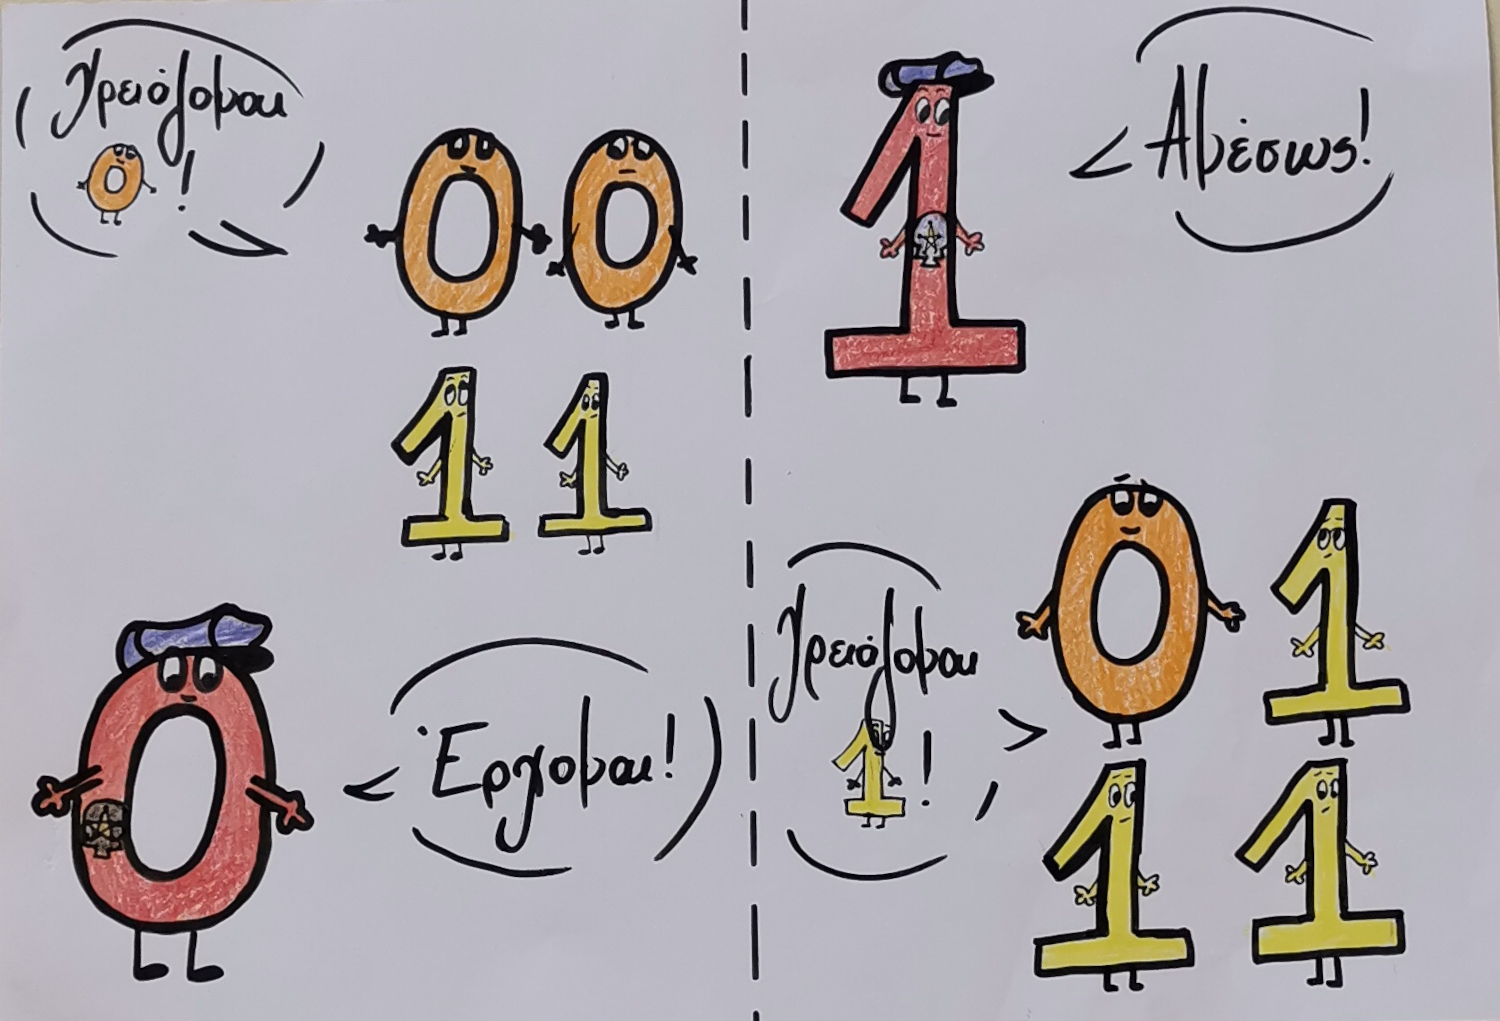 Χρειάζομαι
0!
0 0
1 1
0
Έρχομαι!
1
Αμέσως!
Χρειάζομαι
1!
0 1
1 1